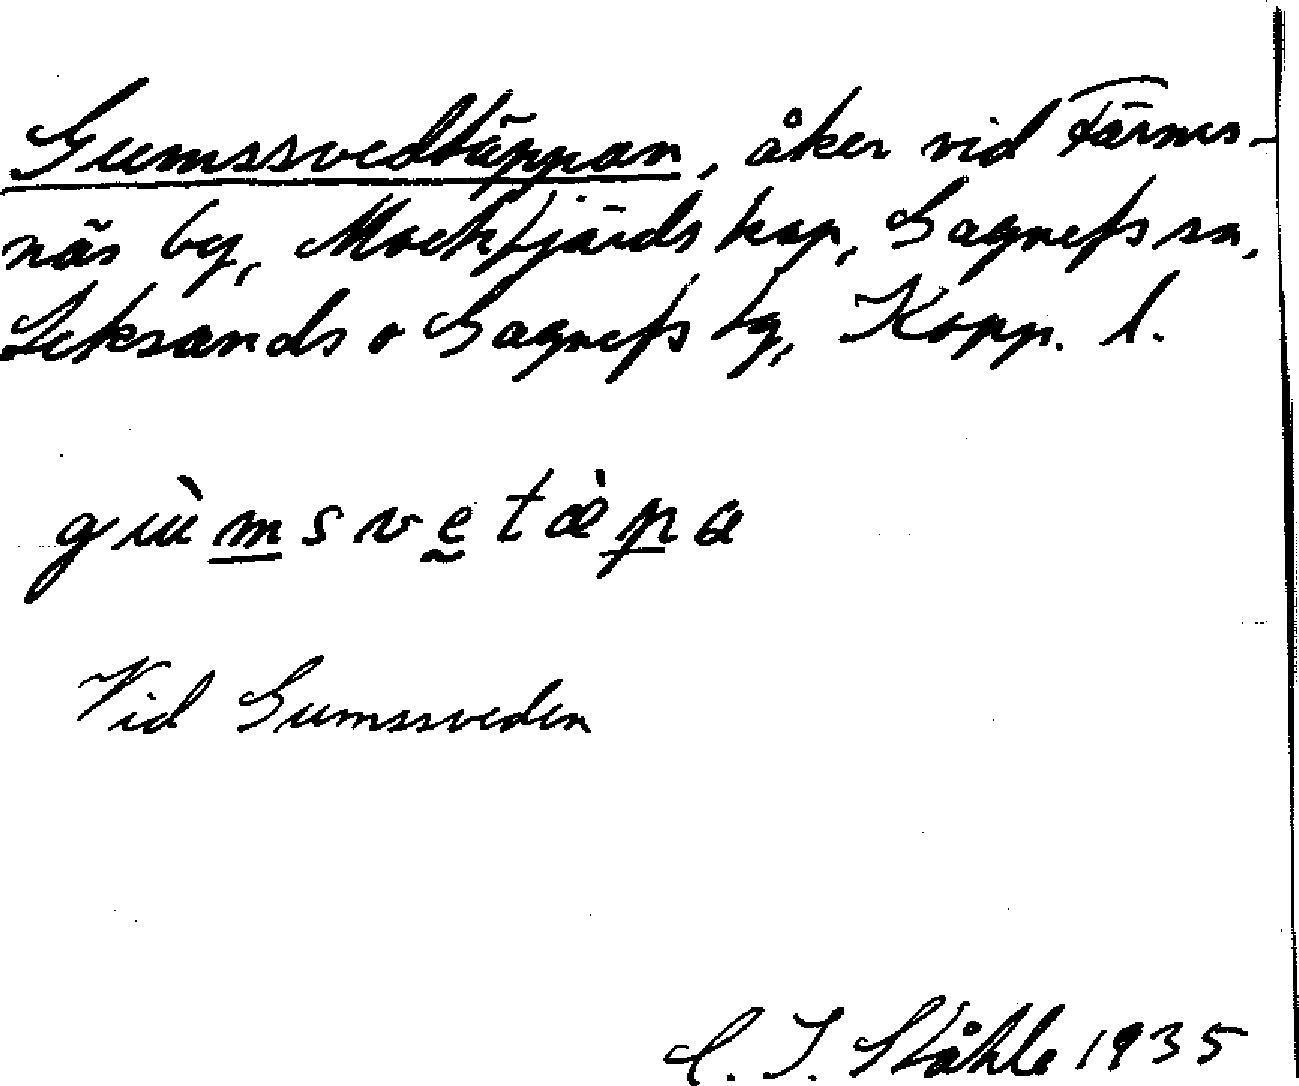 Gumssvedtäppan, åker vid Tärnes-
näs by, Mockfjärds kap, Gagnefs sn,
Leksands o Gagnefs tg, Kopp. l.
gùmsvetæ̀pa
Vid Gumssveden
C. I. Ståhle 1935